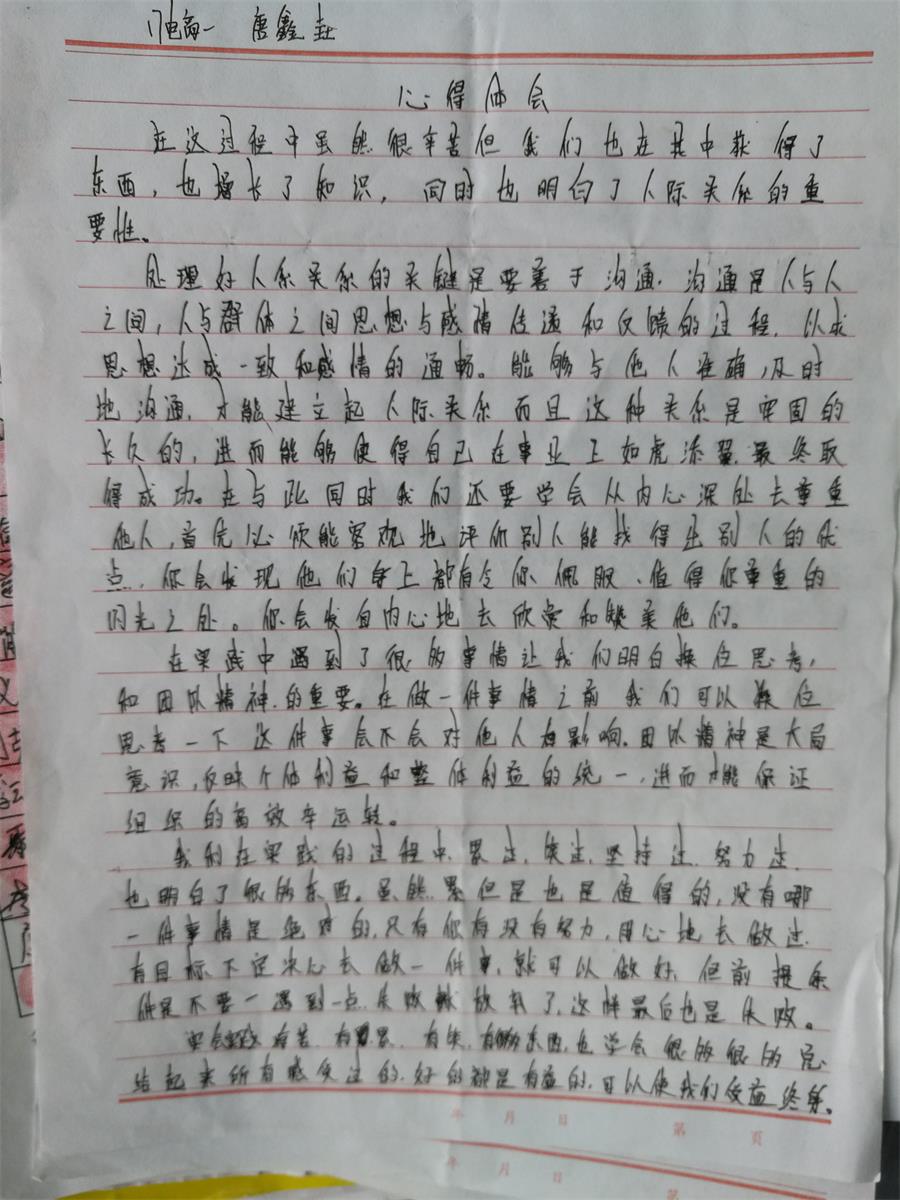 唐鑫
心得体会
在这过程中虽然很辛苦但我们也在其中获得了
东西，也增长了知识，同时也明白了人际关系的重
要性。
处理好人系关系的关键是要善于沟通，沟通是人与人
之间，人与群体之间思想与感情传通和反馈的过程，以求
思想达成一致和感情的通畅。能够与他人准确，及时
地沟通，才能建立起人际关系而且这种关系是牢固的
长久的，进而能够使得自己在事业上如虎添翼，最终取
得成功。在与此同时我们还要学会从内心深处去尊重
他人，首先必须能客观地评价别人能找得出别人的优
点，你会发现他们身上都有令你佩服、值得你尊重的
闪光之处。你会发自内心地去欣赏和赞美他们。
在实践中遇到了很多事情让我们明白换位思考，
和团队精神的重要。在做一件事情之前我们可以换位
思考一下这件事会不会对他人有影响。团队精神是大局
意识，反映个体利益和整体利益的统一，进而才能保证
组织的高效率运转。
我们在实践的过程中，累过，失过，坚持过，努力过
也明白了很多东西。虽然累但是也是值得的，没有哪
一件事情是绝对的，只有你有没有努力，用心地去做过
有目标下定决心去做一件事，就可以做好，但前提条
件是不要一遇到一点失败就放弃了，这样最后也是失败。
实践有苦，有累，有失，有东西，也学会很多很多总
结起来所有感受过的，好的都是有益的，可以使我们受益终身。
年 月 日 第 页
年 月 日 第